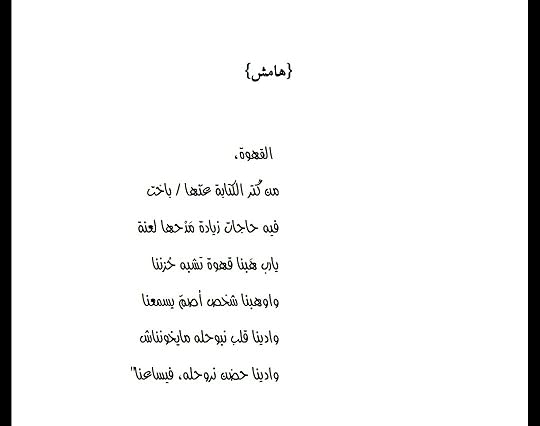 {هامش}
القهوة،
من كُتر الكتابة عنّها / باخت
فيه حاجات زيادة مَدْحها لعنة
يارب هَبنا قهوة تشبه حُزننا
واوهبنا شخص أصمّ يسمعنا
وادينا قلب نبوحله مايخونناش
وادينا حضن نروحله، فيساعنا"